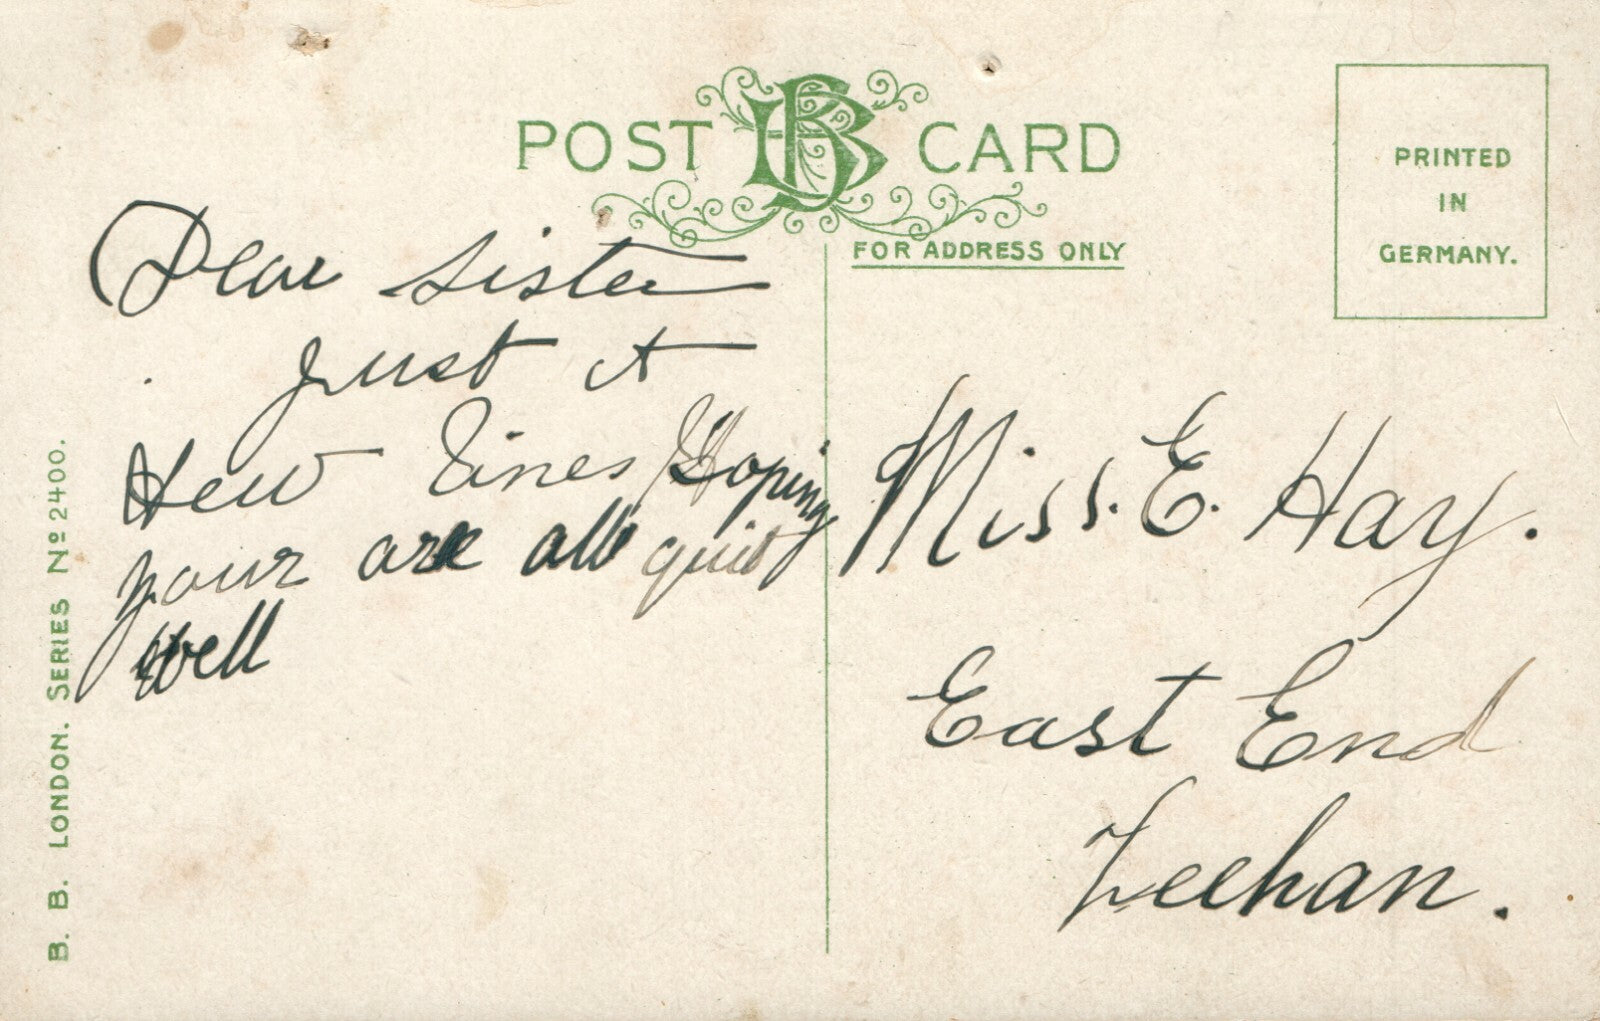 POST CARD
FOR ADDRESS ONLY
PRINTED
IN
GERMANY.
Dear Sister
just a
few lines Hoping
your are all quit
well
Miss. E. Hay.
East End
Zeehan.
B. B. LONDON. SERIES Nº 2400.